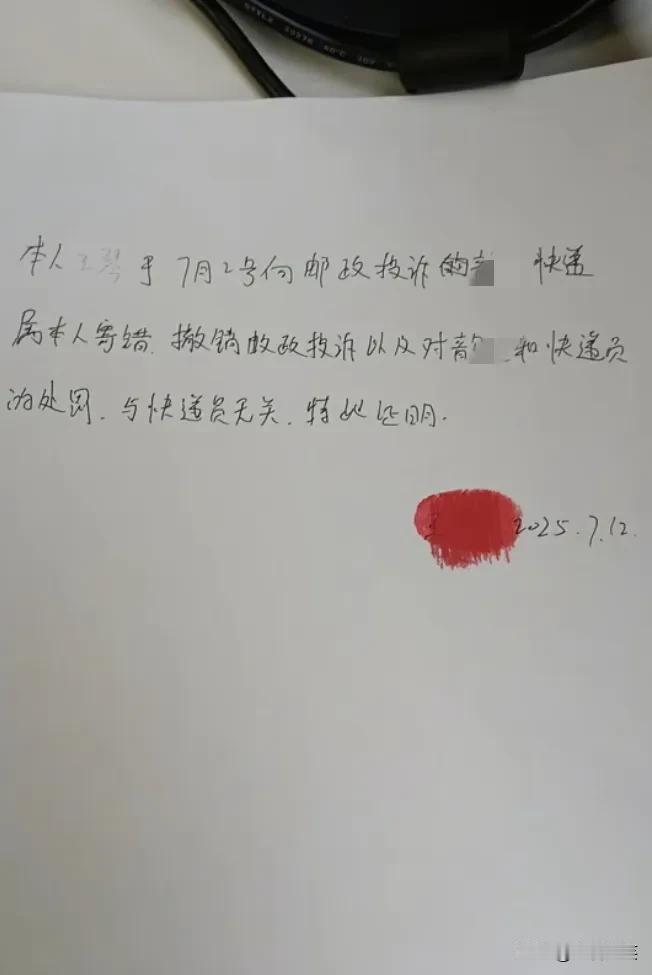 STYLE 20276 80°C 30V
本人王琴于7月2号向邮政投诉的 快递
属本人寄错.撤销邮政投诉以及对音 和快递员
的处罚.与快递员无关.特此证明.
2025.7.12.